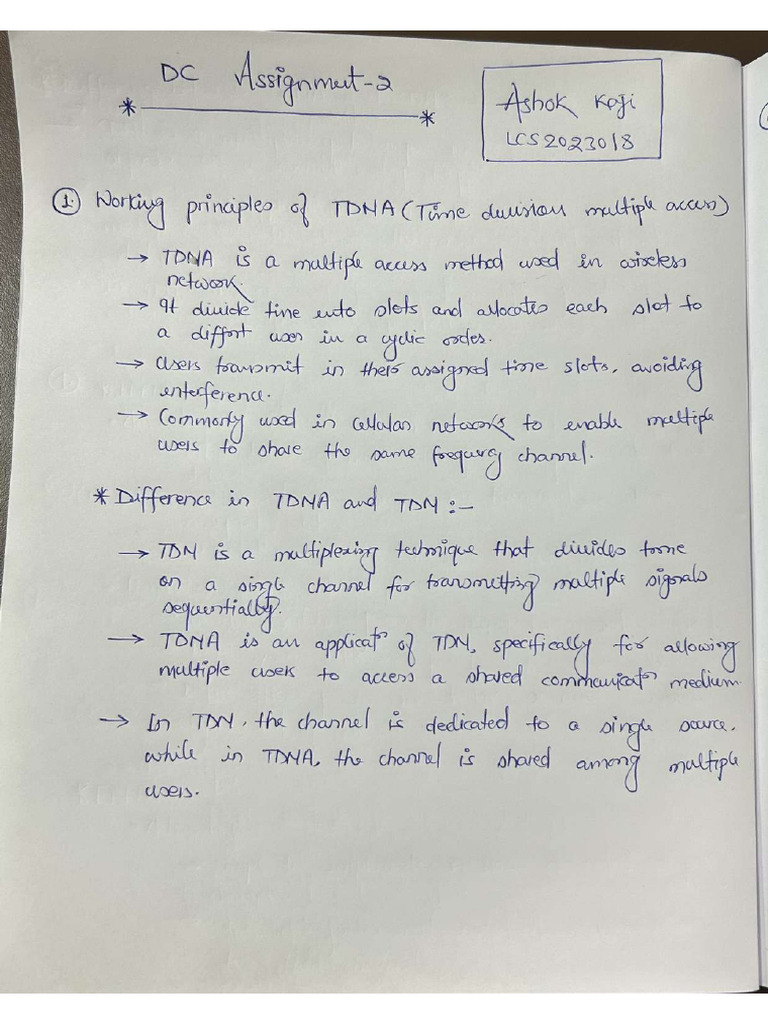 DC Assignment-2
Ashok Koji
LCS2023018
1. Working principles of TDMA (Time division multiple access)
→ TDMA is a multiple access method used in wireless
network.
→ It divide time into slots and allocates each slot to
a diffort user in a cyclic order.
→ Users transmit in their assigned time slots, avoiding
interference.
→ Commonly used in cellular networks to enable multiple
users to share the same frequency channel.
* Difference in TDMA and TDM :-
→ TDM is a multiplexing technique that divides time
on a single channel for transmitting multiple signals
sequentially.
→ TDMA is an applicatⁿ of TDM, specifically for allowing
multiple users to access a shared communicatⁿ medium.
→ In TDM, the channel is dedicated to a single source,
while in TDMA, the channel is shared among multiple
users.